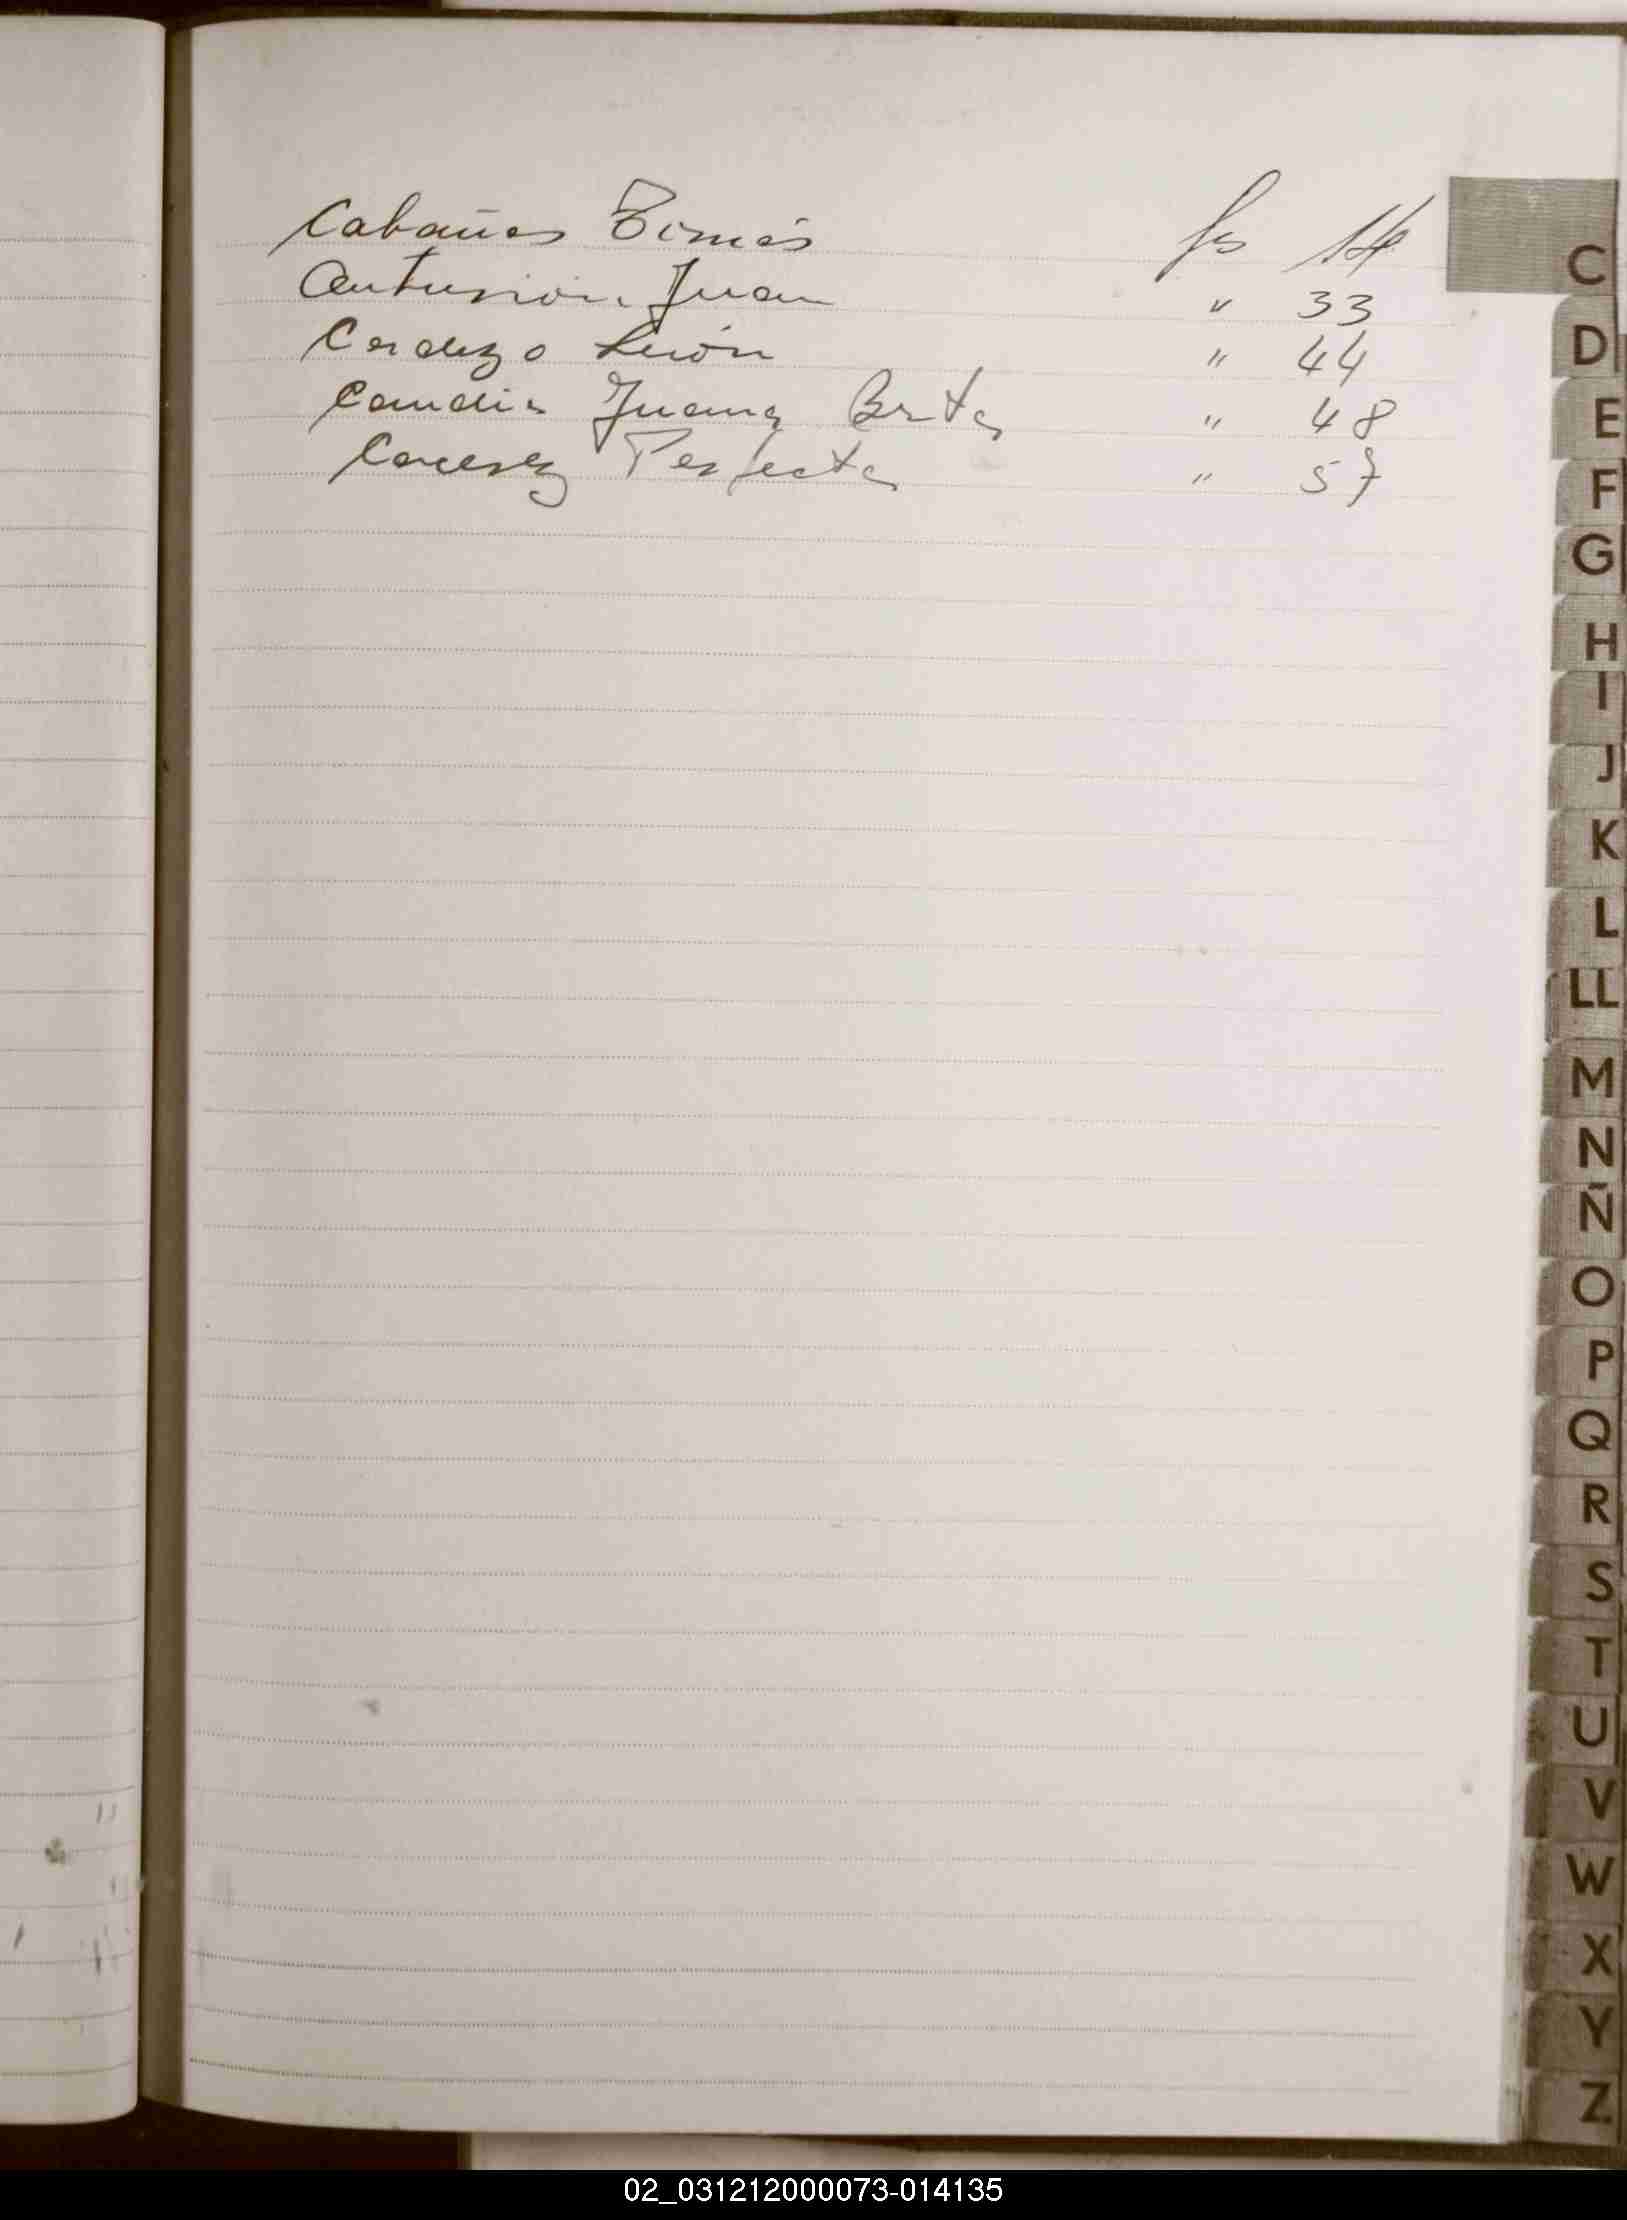 Cabañas Tomás fs 14
Juan " 33
León " 44
Candia Juana Bnta " 48
Perfecta " 57
C
D
E
F
G
H
I
J
K
L
LL
M
N
Ñ
O
P
Q
R
S
T
U
V
W
X
Y
Z
02_031212000073-014135